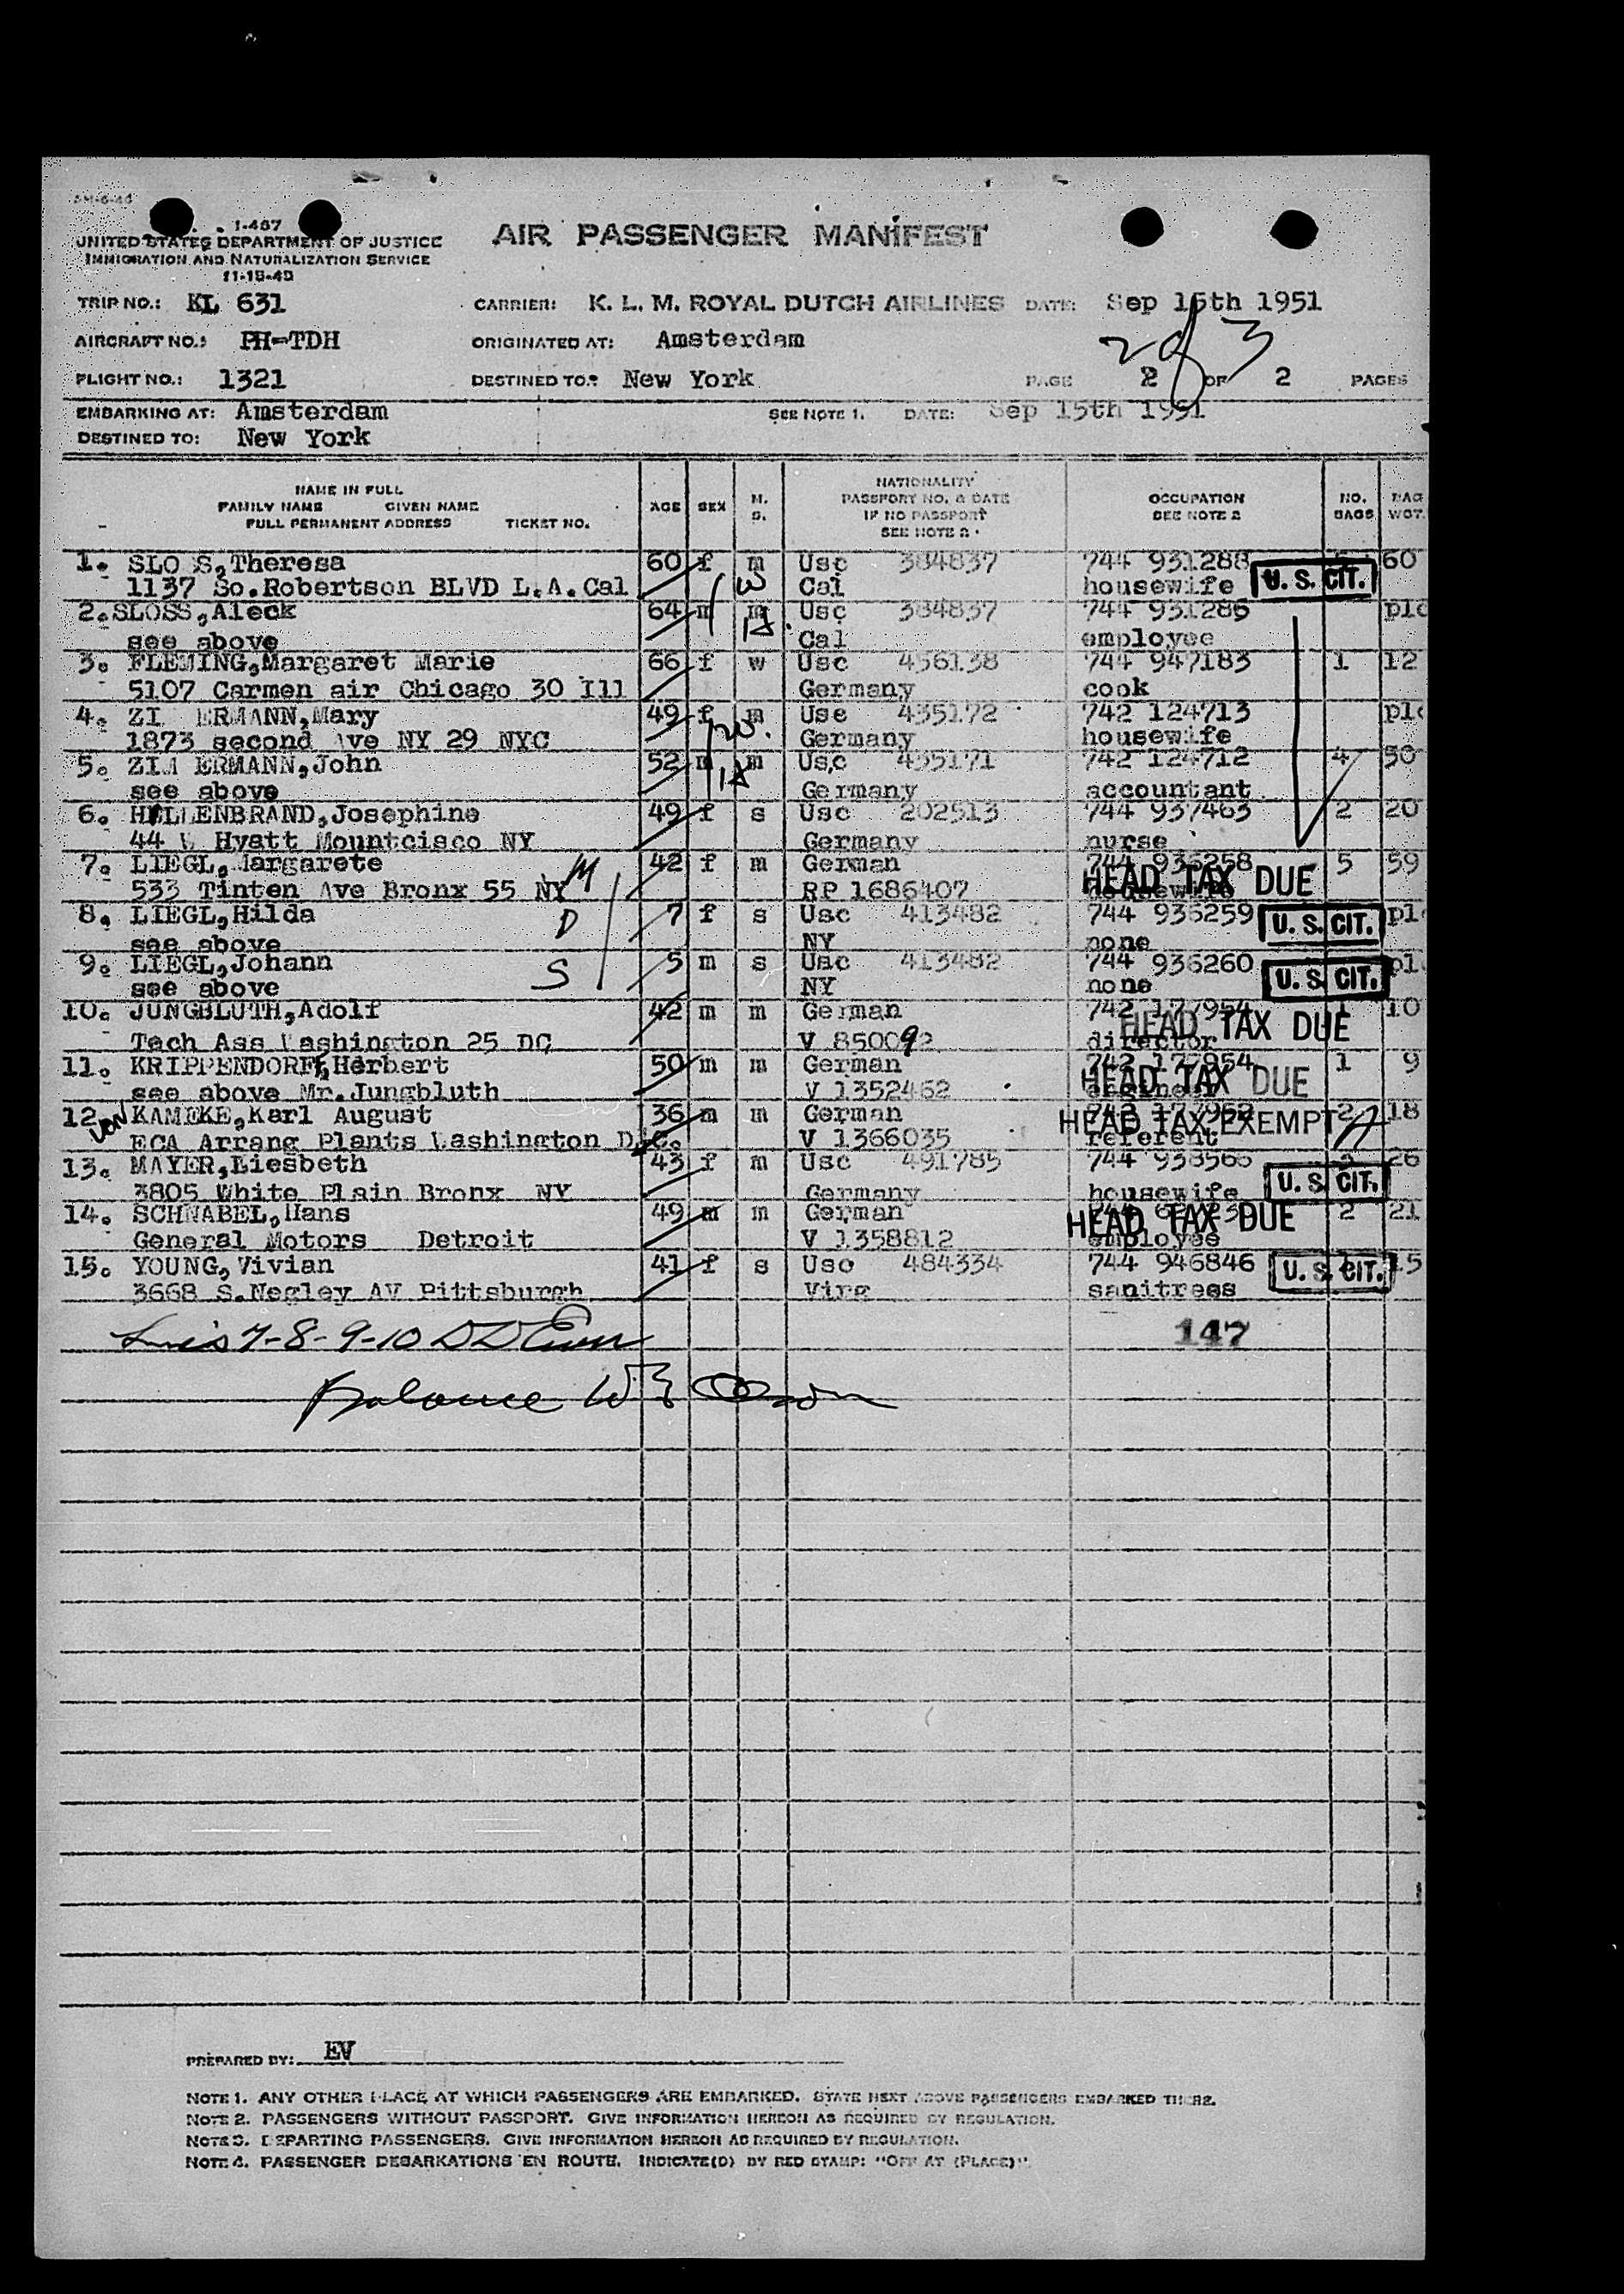 I-467
UNITED STATES DEPARTMENT OF JUSTICE
IMMIGRATION AND NATURALIZATION SERVICE
11-18-49
AIR PASSENGER MANIFEST
TRIP NO.: KL 631 CARRIER: K. L. M. ROYAL DUTCH AIRLINES DATE: Sep 15th 1951
AIRCRAFT NO.: PH-TDH ORIGINATED AT: Amsterdam
2 of 3
FLIGHT NO.: 1321 DESTINED TO: New York PAGE 2 OF 2 PAGES
EMBARKING AT: Amsterdam SEE NOTE 1. DATE: Sep 15th 1951
DESTINED TO: New York
NAME IN FULL
FAMILY NAME GIVEN NAME
FULL PERMANENT ADDRESS TICKET NO.
AGE SEX M. S.
NATIONALITY
PASSPORT NO. & DATE
IF NO PASSPORT
SEE NOTE 2
OCCUPATION
SEE NOTE 2
NO. BAGS BAG WGT.
1. SLO S,Theresa 60 f m Usc 384837 744 931288 60
1137 So.Robertson BLVD L.A.Cal W Cal housewife U. S. CIT.
2.SLOSS,Aleck 64 m m Usc 384837 744 931286 plc
see above H. Cal employee
3. FLEMING,Margaret Marie 66 f w Usc 456138 744 947183 1 12
5107 Carmen air Chicago 30 Ill Germany cook
4. ZI ERMANN,Mary 49 f m Use 435172 742 124713 plc
1873 second Ave NY 29 NYC W. Germany housewife
5. ZIM ERMANN,John 52 m m Usc 435171 742 124712 4 50
see above H Germany accountant
6. HILLENBRAND,Josephine 49 f s Usc 202513 744 937463 2 20
44 W Hyatt Mountcisco NY Germany nurse
7. LIEGL,Margarete 42 f m German 744 936258 5 59
533 Tinten Ave Bronx 55 NY M RP 1686407 HEAD TAX DUE
8. LIEGL,Hilda D 7 f s Usc 413482 744 936259 U. S. CIT. plc
see above NY none
9. LIEGL,Johann S 5 m s Usc 413482 744 936260 U. S. CIT. pl
see above NY none
10. JUNGBLUTH,Adolf 42 m m German 742 177954 1 10
Tech Ass Washington 25 DC V 850092 director HEAD TAX DUE
11. KRIPPENDORFF,Herbert 50 m m German 742 177954 1 9
see above Mr.Jungbluth V 1352462 engineer HEAD TAX DUE
12. von KAMEKE,Karl August 36 m m German HEAD TAX EXEMPT 2 18
ECA Arrang Plants Washington D.C. V 1366035 referent
13. MAYER,Liesbeth 43 f m Usc 491785 744 938566 26
3805 White Plain Bronx NY Germany housewife U. S. CIT.
14. SCHNABEL,Hans 49 m m German HEAD TAX DUE 2 21
General Motors Detroit V 1358812 employee
15. YOUNG,Vivian 41 f s Usc 484334 744 946846 U. S. CIT. 15
3668 S.Negley AV Pittsburgh Virg sanitrees
7-8-9-10 147
Balance
PREPARED BY: EV
NOTE 1. ANY OTHER PLACE AT WHICH PASSENGERS ARE EMBARKED. STATE NEXT ABOVE PASSENGERS EMBARKED THERE.
NOTE 2. PASSENGERS WITHOUT PASSPORT. GIVE INFORMATION HEREON AS REQUIRED BY REGULATION.
NOTE 3. DEPARTING PASSENGERS. GIVE INFORMATION HEREON AS REQUIRED BY REGULATION.
NOTE 4. PASSENGER DEBARKATIONS EN ROUTE. INDICATE(D) BY RED STAMP: "OFF AT (PLACE)"